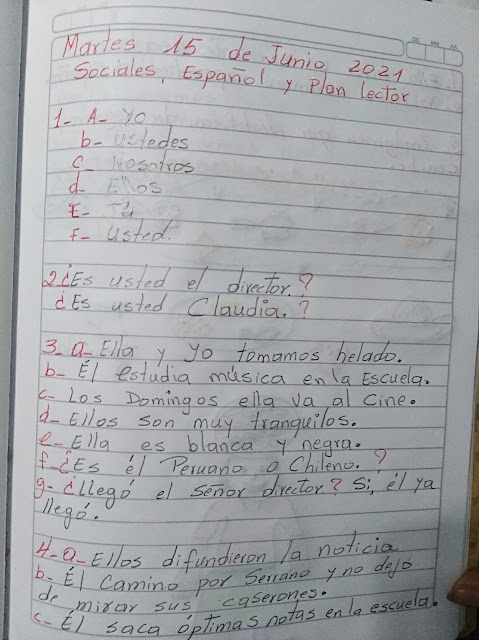 Martes 15 de Junio 2021
Sociales, Español y Plan lector
1- A- Yo
b- ustedes
c- Nosotros
d- Ellos
E- Tú
F- usted.
2¿Es usted el director.?
¿Es usted Claudia.?
3- a- Ella y yo tomamos helado.
b- Él estudia música en la Escuela.
c- Los Domingos ella va al Cine.
d- Ellos son muy tranquilos.
e- Ella es blanca y negra.
f- ¿Es él Peruano o Chileno.?
g- ¿llegó el Señor director? Si, él ya
llegó.
4- a- Ellos difundieron la noticia
b- Él Camino por Serrano y no dejó
de mirar sus caserones.
c- Él saca óptimas notas en la escuela.